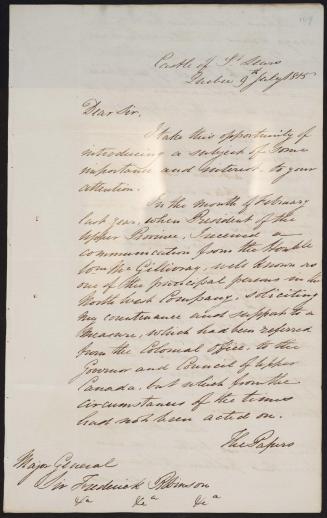 Castle of St Lewis
Quebec 9th July 1815
Dear Sir,
I take this opportunity of
introducing a subject of some
importance and interest to your
attention.
In the month of February
last year, when President of the
Upper Province, I received a
communication from the Honble
Wm McGillivray, well known as
one of the principal persons in the
North West Company, soliciting
my countenance and support to a
Measure, which had been referred
from the Colonial Office, to the
Governor and Council of Upper
Canada, but which from the
circumstances of the times
had not been acted on.
The Papers
Major General
Sir Frederick Robinson
&a &ca &ca